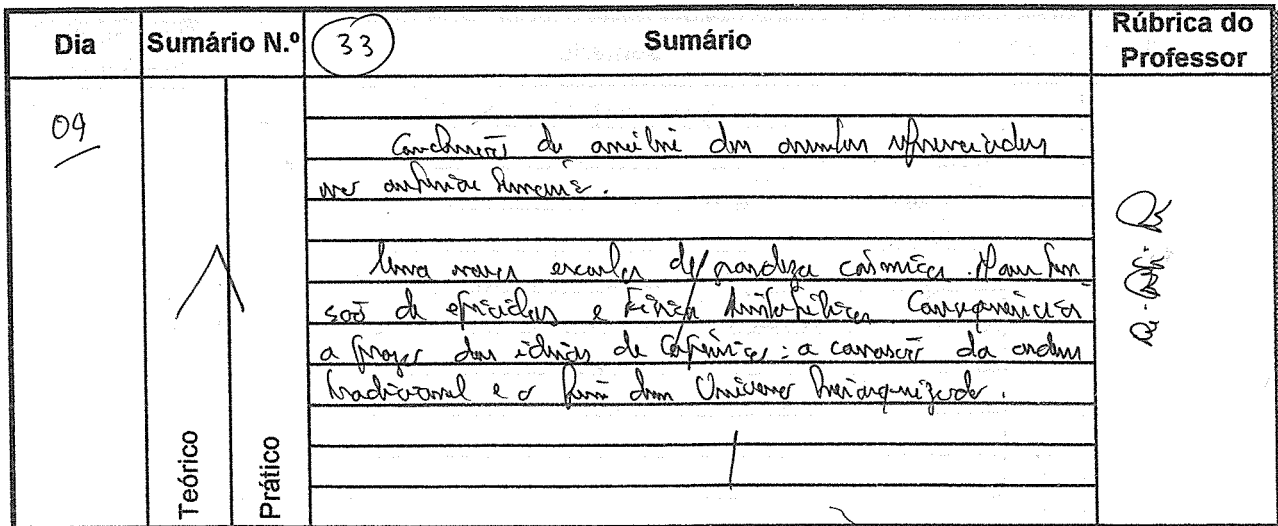 Dia Sumário N.º 33 Sumário Rúbrica do Professor
09
Conclusão da análise dos assuntos referenciados
na anterior
Uma nova escala de grandeza cósmica. Manten
são de epiciclos e Física Aristotélica. Consequências
a prazo das ideias de Copérnico: a corrosão da ordem
tradicional e o fim dum Universo hierarquizado.
Teórico
Prático